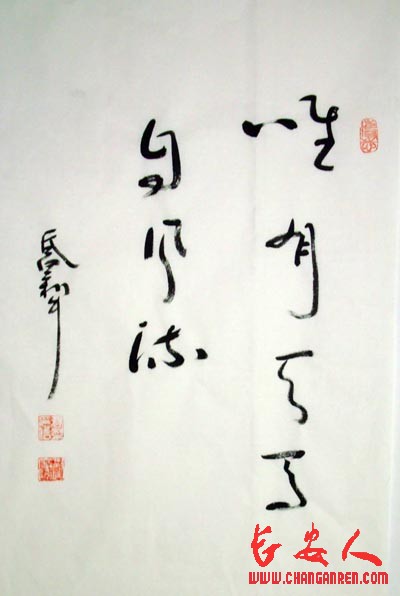 唯有天马
自风流
长安人
WWW.CHANGANREN.COM